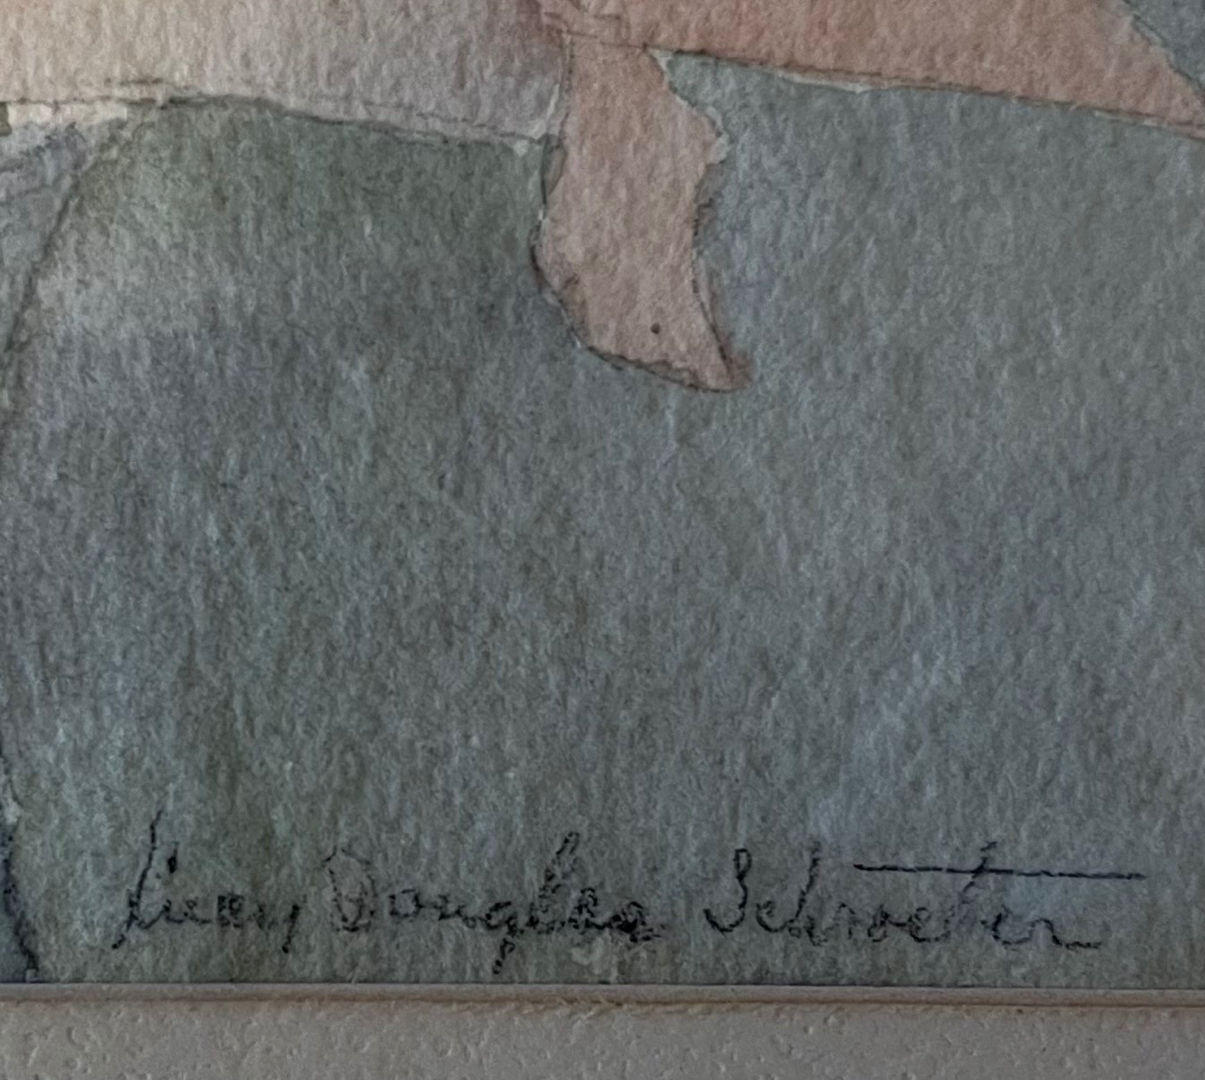 Lucy Douglas Schroeter